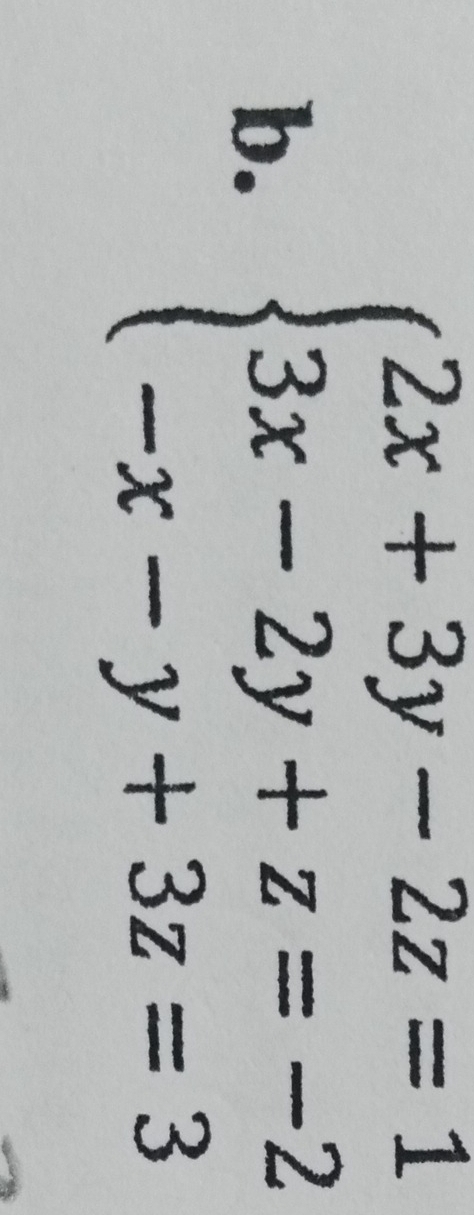 b. 2x + 3y − 2z = 1
3x − 2y + z = −2
−x − y + 3z = 3